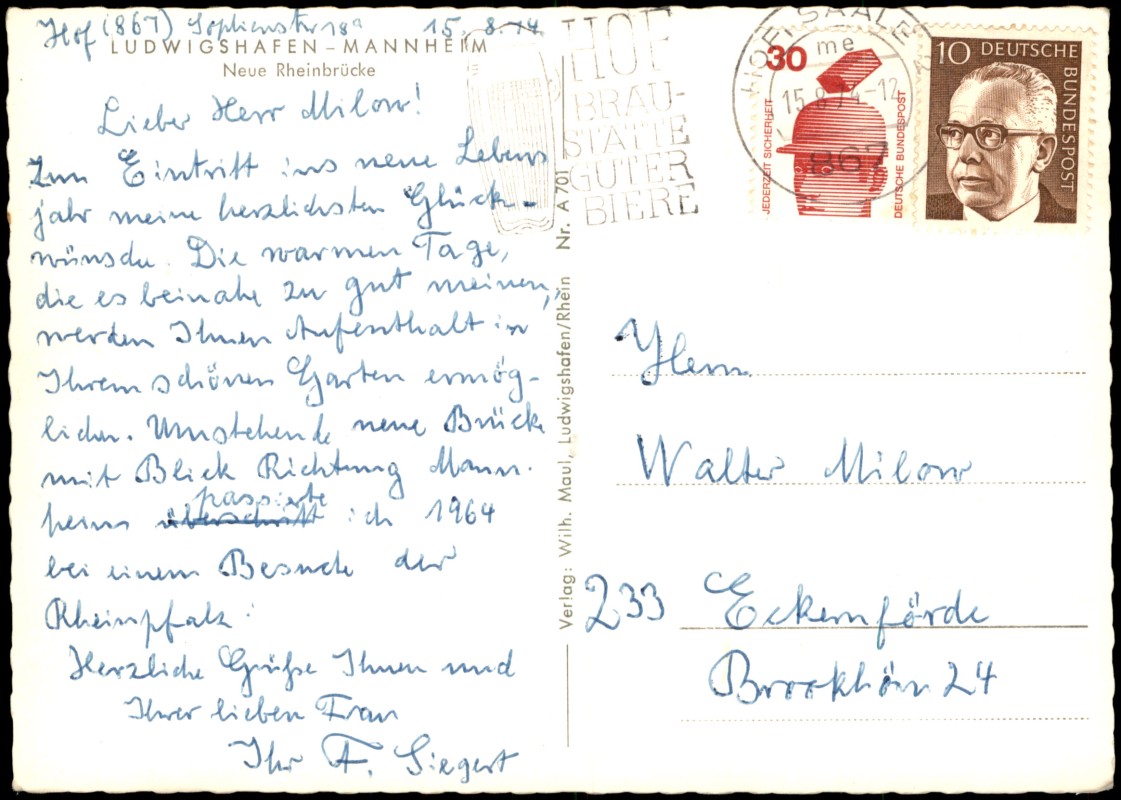 Hof (867) Sophienstr 18a 15. 8. 74
LUDWIGSHAFEN – MANNHEIM
Neue Rheinbrücke
Lieber Herr Milow!
Zum Eintritt ins neue Lebens
jahr meine herzlichsten Glück-
wünsche. Die warmen Tage,
die es beinahe zu gut meinen,
werden Ihnen Aufenthalt in
Ihrem schönen Garten ermög-
lichen. Umstehende neue Brücke
mit Blick Richtung Mann-
heim passierte ich 1964
bei einem Besuche der
Rheinpfalz.
Herzliche Grüße Ihnen und
Ihrer lieben Frau
Ihr F. Siegert
Verlag: Wilh. Maul, Ludwigshafen/Rhein Nr. A 701
HOF
BRAU-
STÄTTE
GUTER
BIERE
HOF, SAALE
me
15.8.74-12
867
30
JEDERZEIT SICHERHEIT
DEUTSCHE BUNDESPOST
10 DEUTSCHE
BUNDESPOST
Herrn
Walter Milow
233 Eckernförde
Brookhörn 24